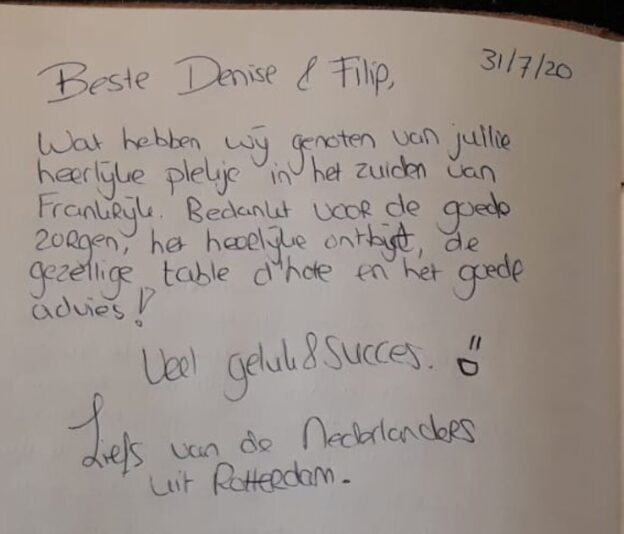 31/7/20
Beste Denise & Filip,
Wat hebben wij genoten van jullie
heerlijke plekje in het zuiden van
Frankrijk. Bedankt voor de goede
zorgen, het heerlijke ontbijt, de
gezellige table d'hote en het goede
advies!
Veel geluk & succes.
Liefs van de Nederlanders
uit Rotterdam.